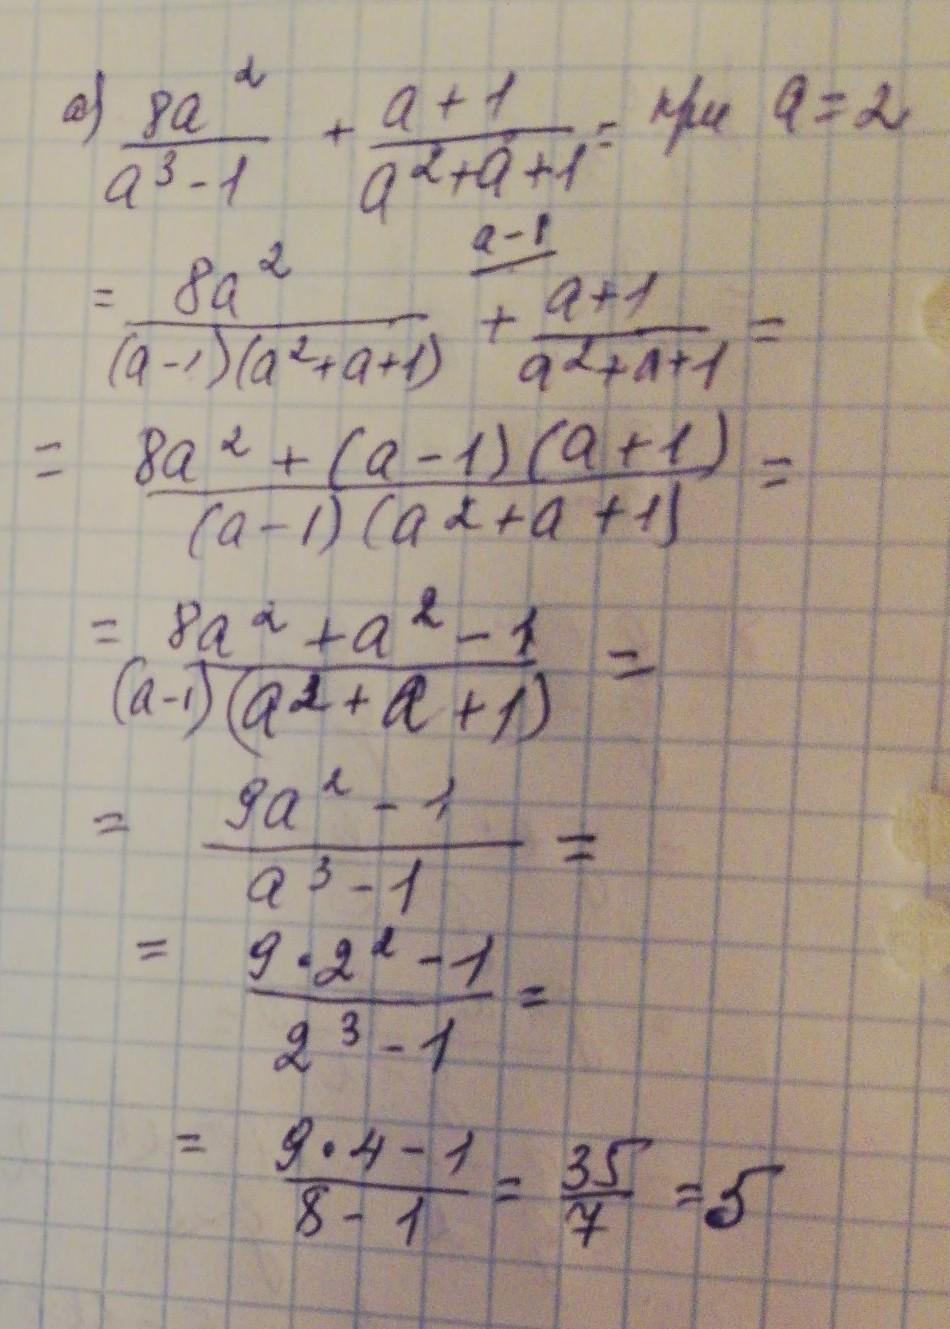 а) 8a²/(a³-1) + (a+1)/(a²+a+1) = при a=2
= 8a²/((a-1)(a²+a+1)) + a-1/ (a+1)/(a²+a+1) =
= (8a²+(a-1)(a+1))/((a-1)(a²+a+1)) =
= (8a²+a²-1)/((a-1)(a²+a+1)) =
= (9a²-1)/(a³-1) =
= (9·2²-1)/(2³-1) =
= (9·4-1)/(8-1) = 35/7 = 5